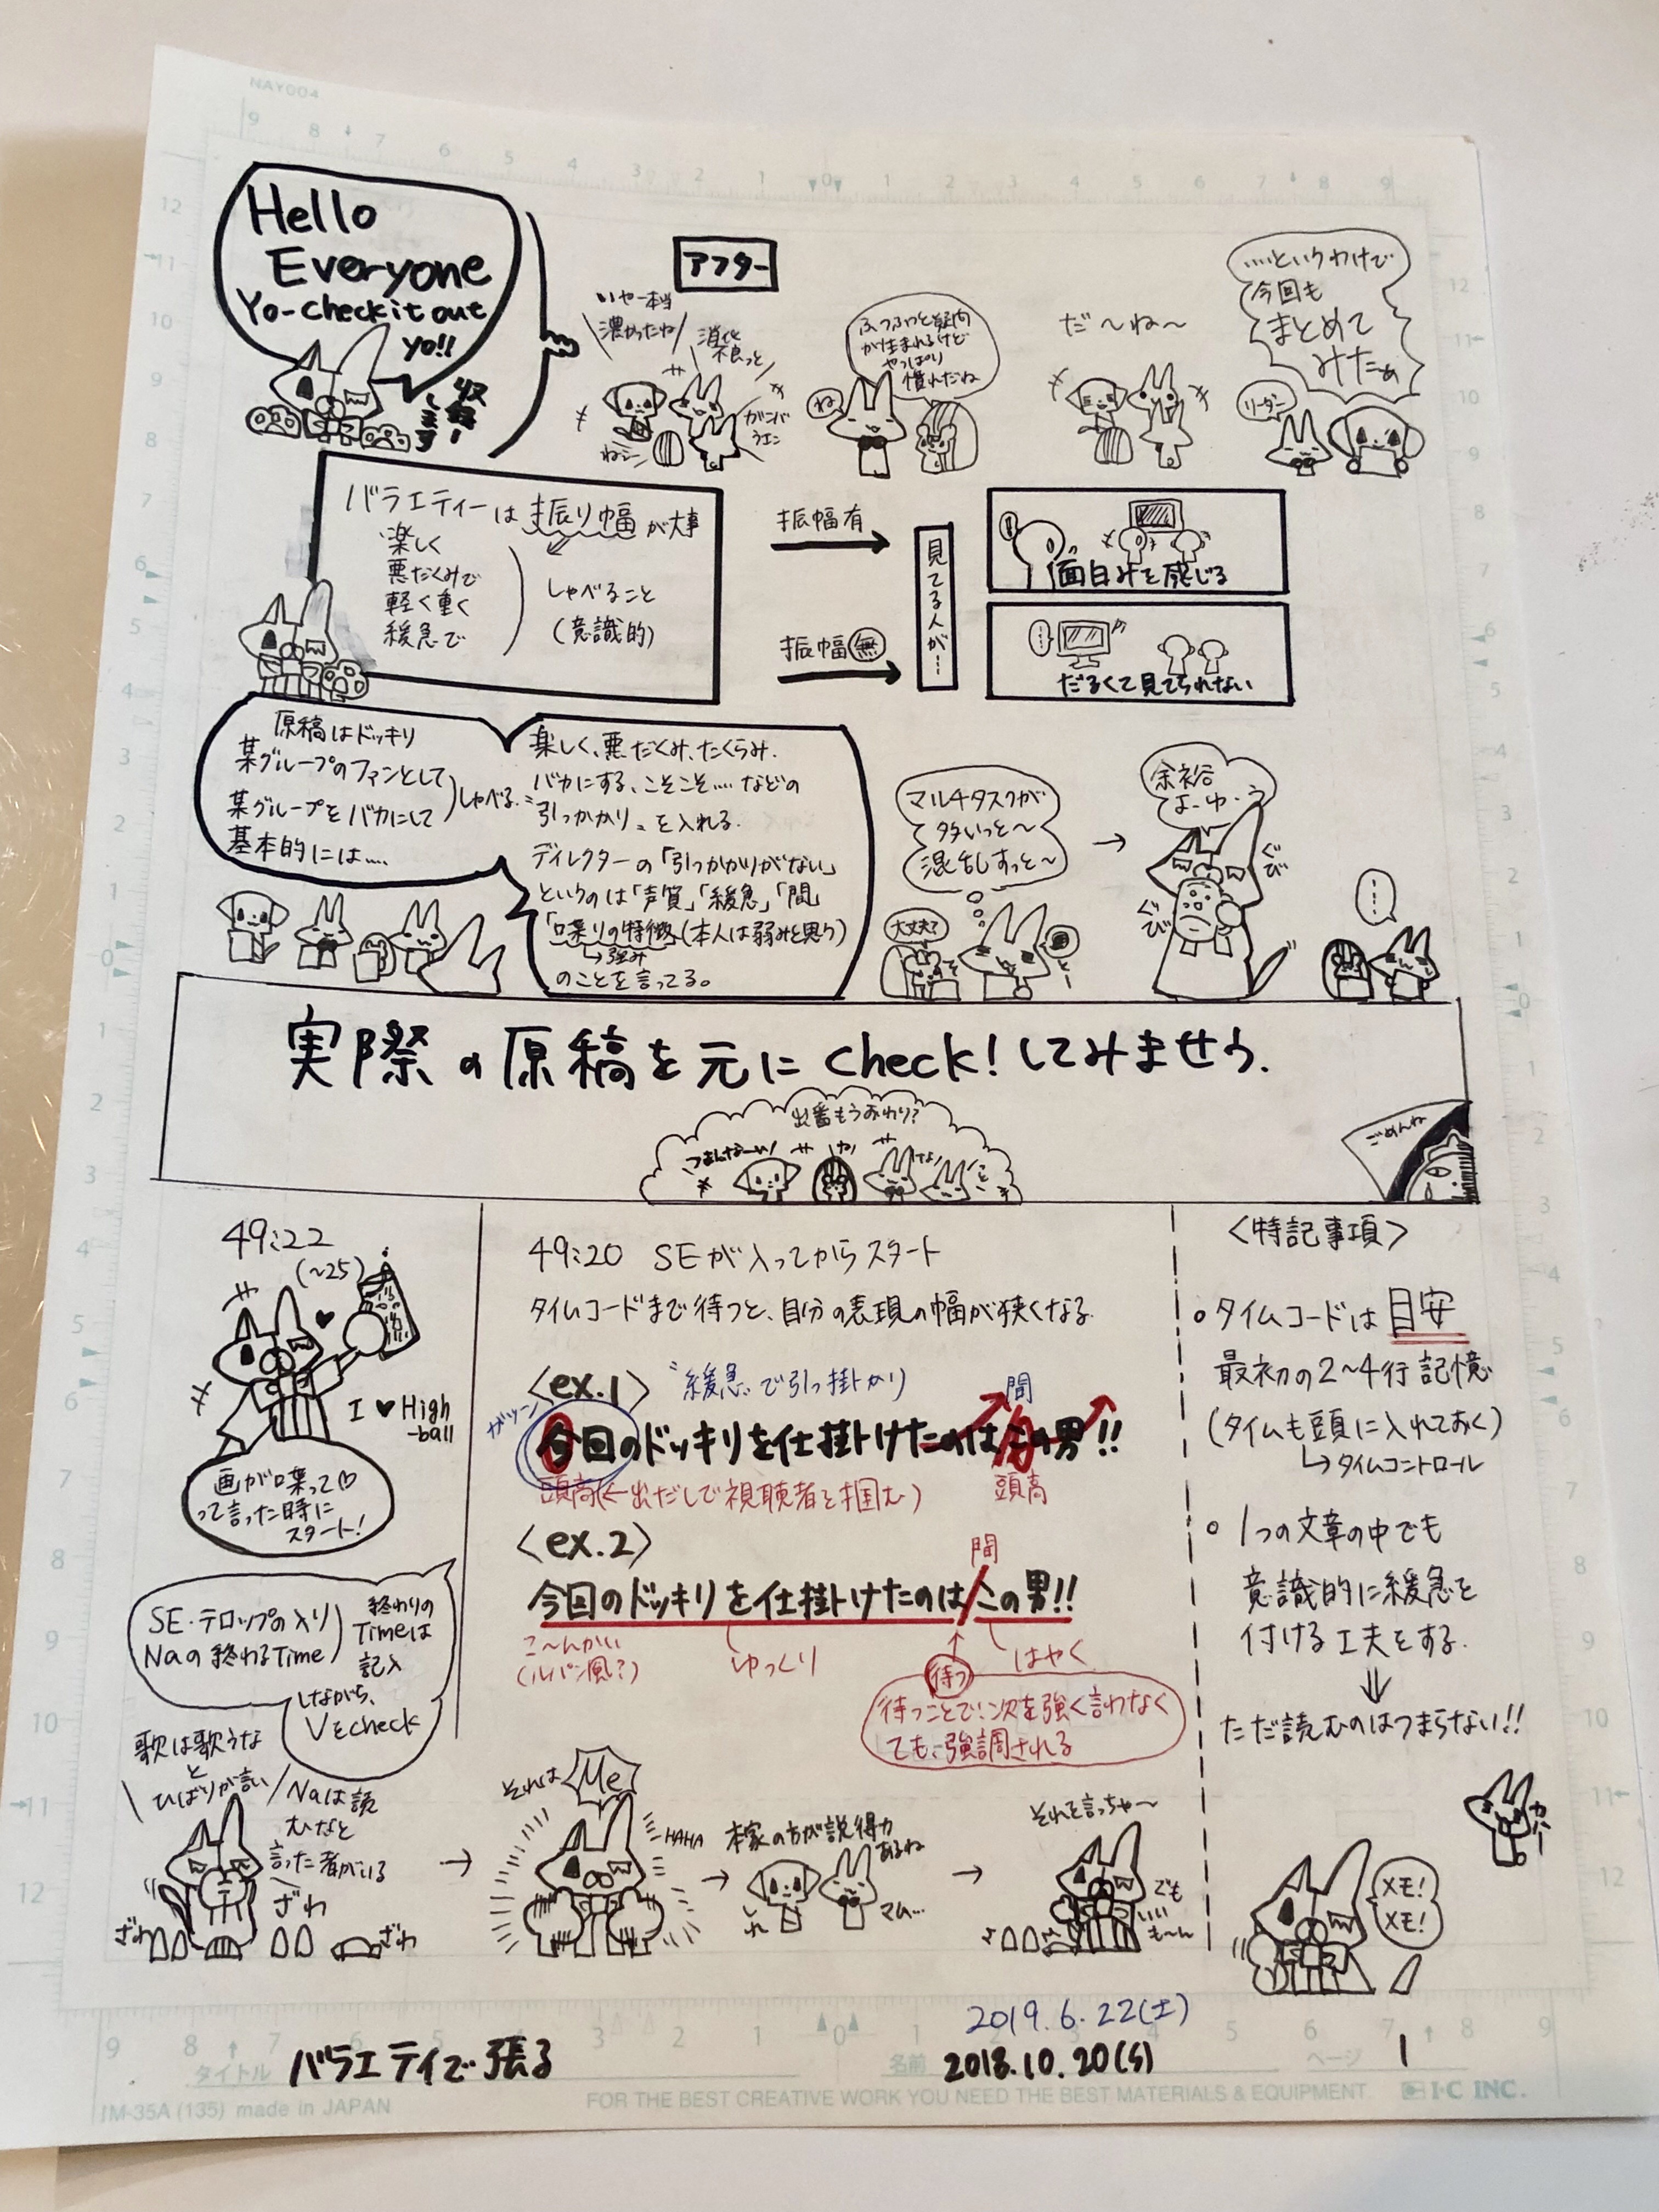 MAY004
Hello
Everyone
Yo-check it out
yo!!
収録
します
アフター
いやー本当
濃かったね
消化
不良っと
ふつふつと疑問
が生まれるけど
やっぱり
慣れだね
ね
だ～ね～
…というわけで
今回も
まとめて
みたぁ
リーダー
バラエティーは振り幅が大事
楽しく
悪だくみで
軽く重く
緩急で
しゃべること
(意識的)
振幅有
振幅無
見てる人が…
面白みを感じる
だるくて見てられない
原稿はドッキリ
某グループのファンとして
某グループをバカにして
しゃべる
基本的には….
楽しく、悪だくみ、たくらみ、
バカにする、こそこそ….などの
引っかかり〟を入れる.
ディレクターの「引っかかりがない」
というのは「声質」「緩急」「間」
「口喋りの特徴(本人は弱みと思う)
↳強み
のことを言ってる。
マルチタスクが
多いっと～
混乱しすっと～
大丈夫?
余裕
よ・ゆ・う
ぐび
ぐび
…
実際の原稿を元にcheck!してみませう.
出番もうおわり?
つまんなーい
ごめんね
49:22
(～25)
I ♥ High
-ball
画が喋って♡
って言った時に
スタート!
SE・テロップの入り
Naの終わるTime
終わりの
Timeは
記入
しながら、
Vをcheck
49:20 SEが入ってからスタート
タイムコードまで待つと、自分の表現の幅が狭くなる.
<ex.1> 〝緩急〟で引っ掛かり
間
ガツーン
今回のドッキリを仕掛けたのはこの男!!
頭高(←出だしで視聴者を掴む)
頭高
<ex.2>
間
今回のドッキリを仕掛けたのは/この男!!
こ～んかい
(ルパン風?)
ゆっくり
待つ
はやく
待つことで、次を強く言わなく
ても、強調される
<特記事項>
○タイムコードは目安
最初の2～4行記憶
(タイムも頭に入れておく)
↳タイムコントロール
○1つの文章の中でも
意識的に緩急を
付ける工夫をする.
⇓
ただ読むのはつまらない!!
歌は歌うな
と
ひばりが言い
Naは読
むなと
言った者がいる
ざわ
ざわ
ざわ
→
それは
Me
HAHA
→
本家の方が説得力
あるね
→
それを言っちゃ～
でも
いい
も～ん
メモ!
メモ!
2019.6.22(土)
タイトル バラエティで張る
名前 2018.10.20(S)
ページ 1
IM-35A (135) made in JAPAN
FOR THE BEST CREATIVE WORK YOU NEED THE BEST MATERIALS & EQUIPMENT.
I·C INC.